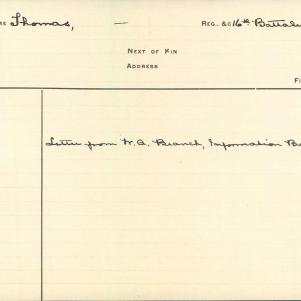 RE Thomas, REG. &C 16th Battali
NEXT OF KIN
ADDRESS
FI
Letter from W.A. Branch, Information B